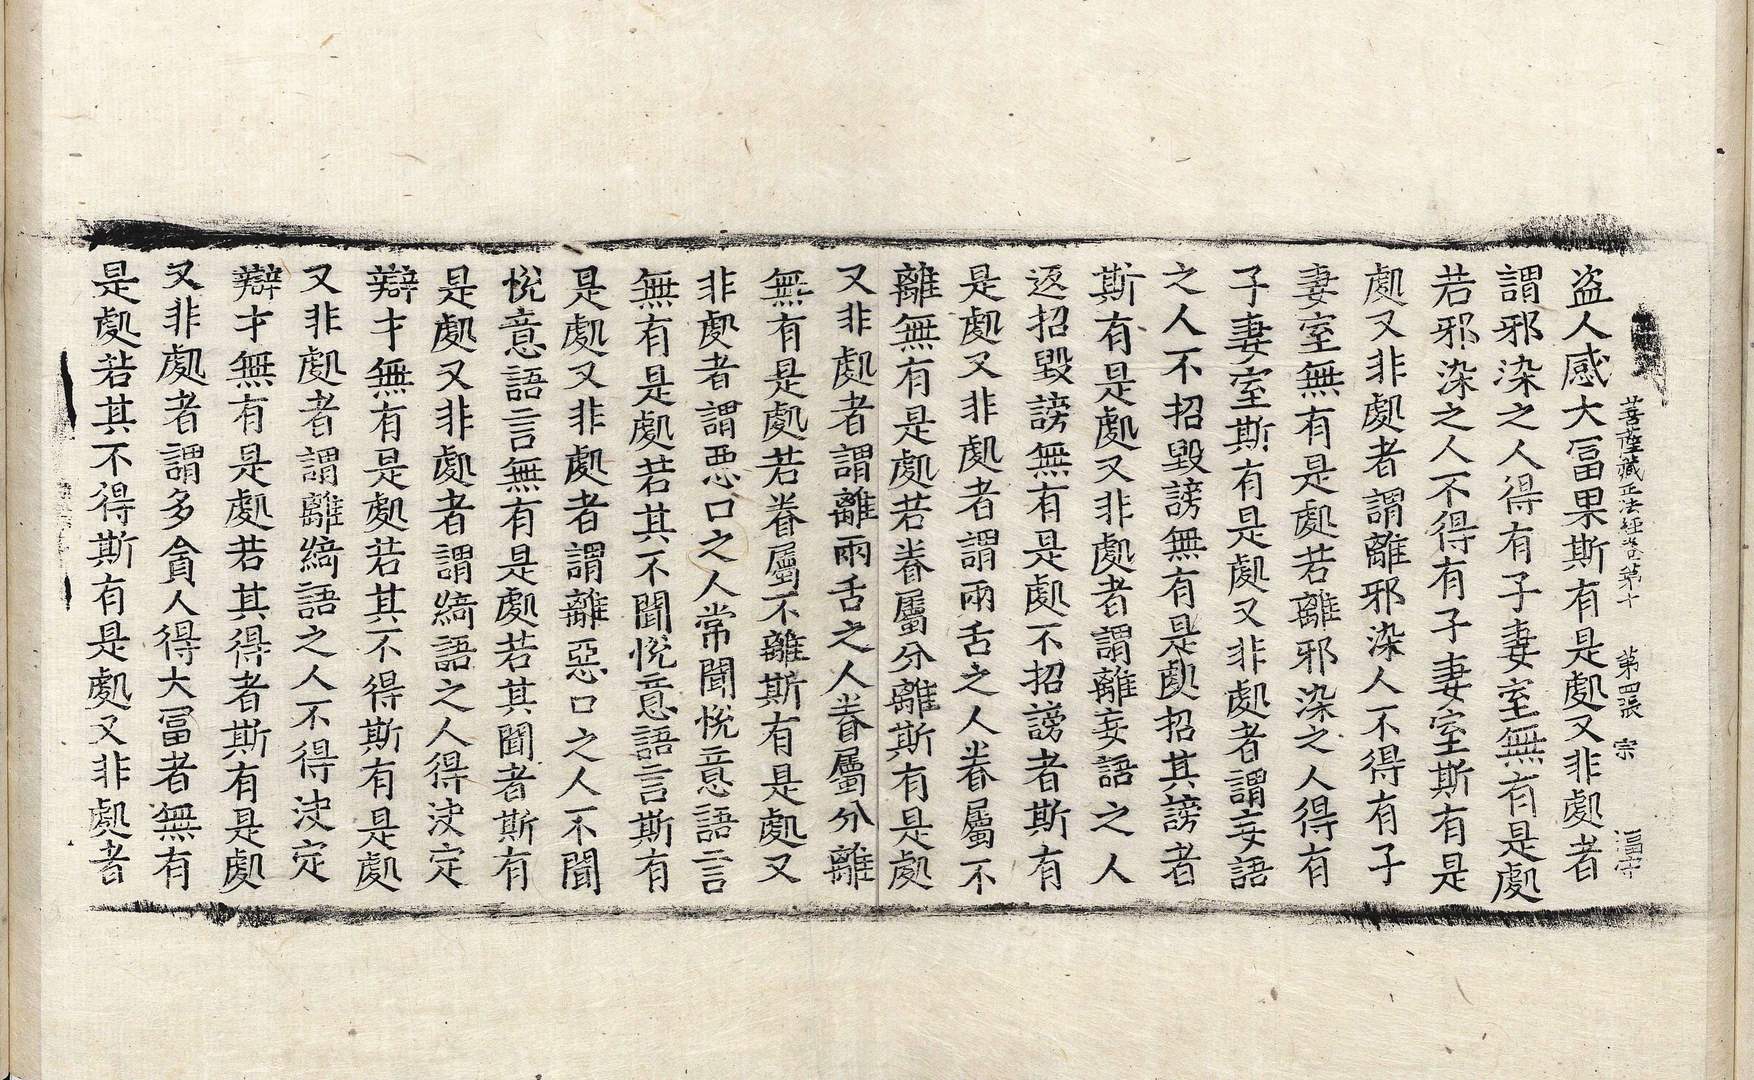 菩薩藏正法經卷第十　第四張　宗
盗人感大冨果斯有是處又非處者
謂邪染之人得有子妻室無有是處
若邪染之人不得有子妻室斯有是
處又非處者謂離邪染人不得有子
妻室無有是處若離邪染之人得有
子妻室斯有是處又非處者謂妄語
之人不招毀謗無有是處招其謗者
斯有是處又非處者謂離妄語之人
返招毀謗無有是處不招謗者斯有
是處又非處者謂兩舌之人眷屬不
離無有是處若眷屬分離斯有是處
又非處者謂離兩舌之人眷屬分離
無有是處若眷屬不離斯有是處又
非處者謂惡口之人常聞悅意語言
無有是處若其不聞悅意語言斯有
是處又非處者謂離惡口之人不聞
悅意語言無有是處若其聞者斯有
是處又非處者謂綺語之人得決定
辯才無有是處若其不得斯有是處
又非處者謂離綺語之人不得決定
辯才無有是處若其得者斯有是處
又非處者謂多貪人得大冨者無有
是處若其不得斯有是處又非處者